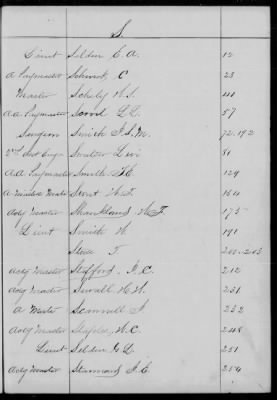 S
Lieut Selden C. A. 12
A A Paymaster Schenck, C 23
Master Schely W. S. 41
A A Paymaster L L. 57
Surgeon Smith J. S. M. 72.192
2nd Ast Engr Smalter Levi 81
A A Paymaster Smith 129
A Master Mate Stout W. F. 164
Actg Master Shankland W. F. 175
Lieut Smith W 191
F. 201-203
Actg Master Stafford. J. C. 212
Actg Master Sewall H. W. 231
A Master Scammell J. 232
Actg Master Staples, W. C. 248
Lieut Selden G L. 251
Actg Master Stannard J. E 254